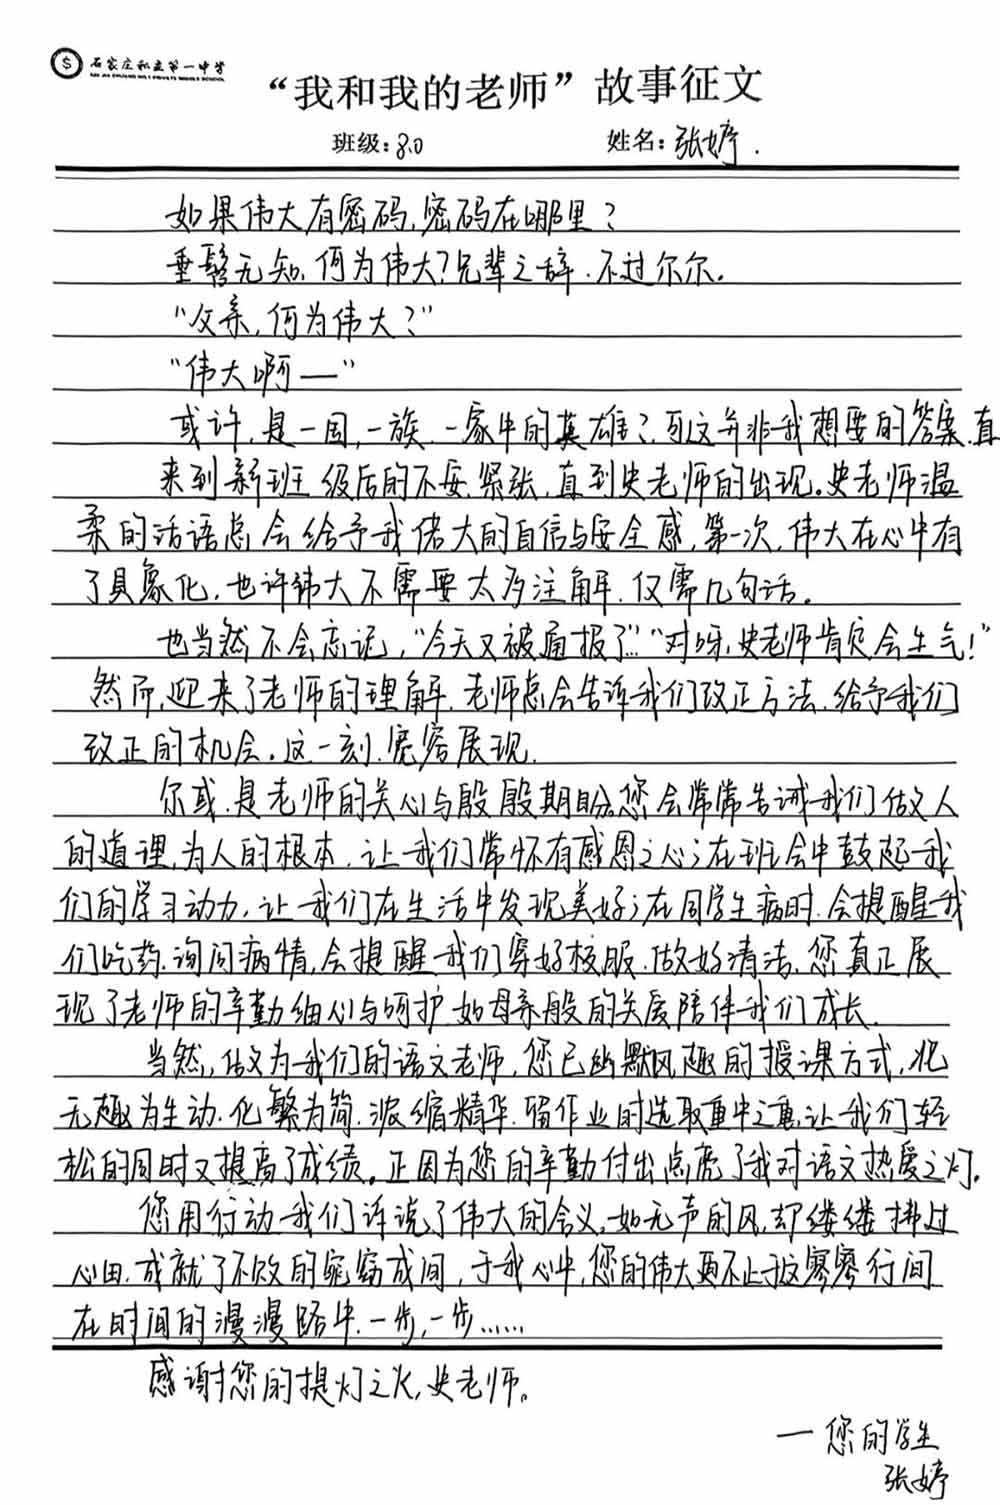 石家庄私立第一中学
“我和我的老师”故事征文
班级:8.0 姓名:张婷.
如果伟大有密码,密码在哪里?
垂髫无知,何为伟大?兄辈之辞,不过尔尔。
“父亲,何为伟大?”
“伟大啊—”
或许,是一国,一族,一家中的英雄?可这并非我想要的答案,直
来到新班级后的不安,紧张,直到史老师的出现。史老师温
柔的话语总会给予我偌大的自信与安全感,第一次,伟大在心中有
了具象化,也许伟大不需要太多注解,仅需几句话。
也当然不会忘记,“今天又被通报了...”“对呀,史老师肯定会生气!”
然而,迎来了老师的理解,老师总会告诉我们改正方法,给予我们
改正的机会。这一刻,宽容展现.
尔或,是老师的关心与殷殷期盼。您会常常告诫我们做人
的道理,为人的根本,让我们常怀有感恩之心;在班会中鼓起我
们的学习动力,让我们在生活中发现美好;在同学生病时,会提醒我
们吃药,询问病情,会提醒我们穿好校服,做好清洁,您真正展
现了老师的辛勤细心与呵护,如母亲般的关爱陪伴我们成长.
当然,做为我们的语文老师,您已幽默风趣的授课方式,化
无趣为生动,化繁为简,浓缩精华,留作业时选取重中之重,让我们轻
松的同时又提高了成绩。正因为您的辛勤付出点亮了我对语文热爱之灯.
您用行动我们诉说了伟大的含义。如无声的风,却缕缕拂过
心田,成就了不败的窕窈成间,于我心中,您的伟大更不止于这寥寥行间
在时间的漫漫路中,一步,一步......
感谢您的提灯之火,史老师。
—您的学生
张婷